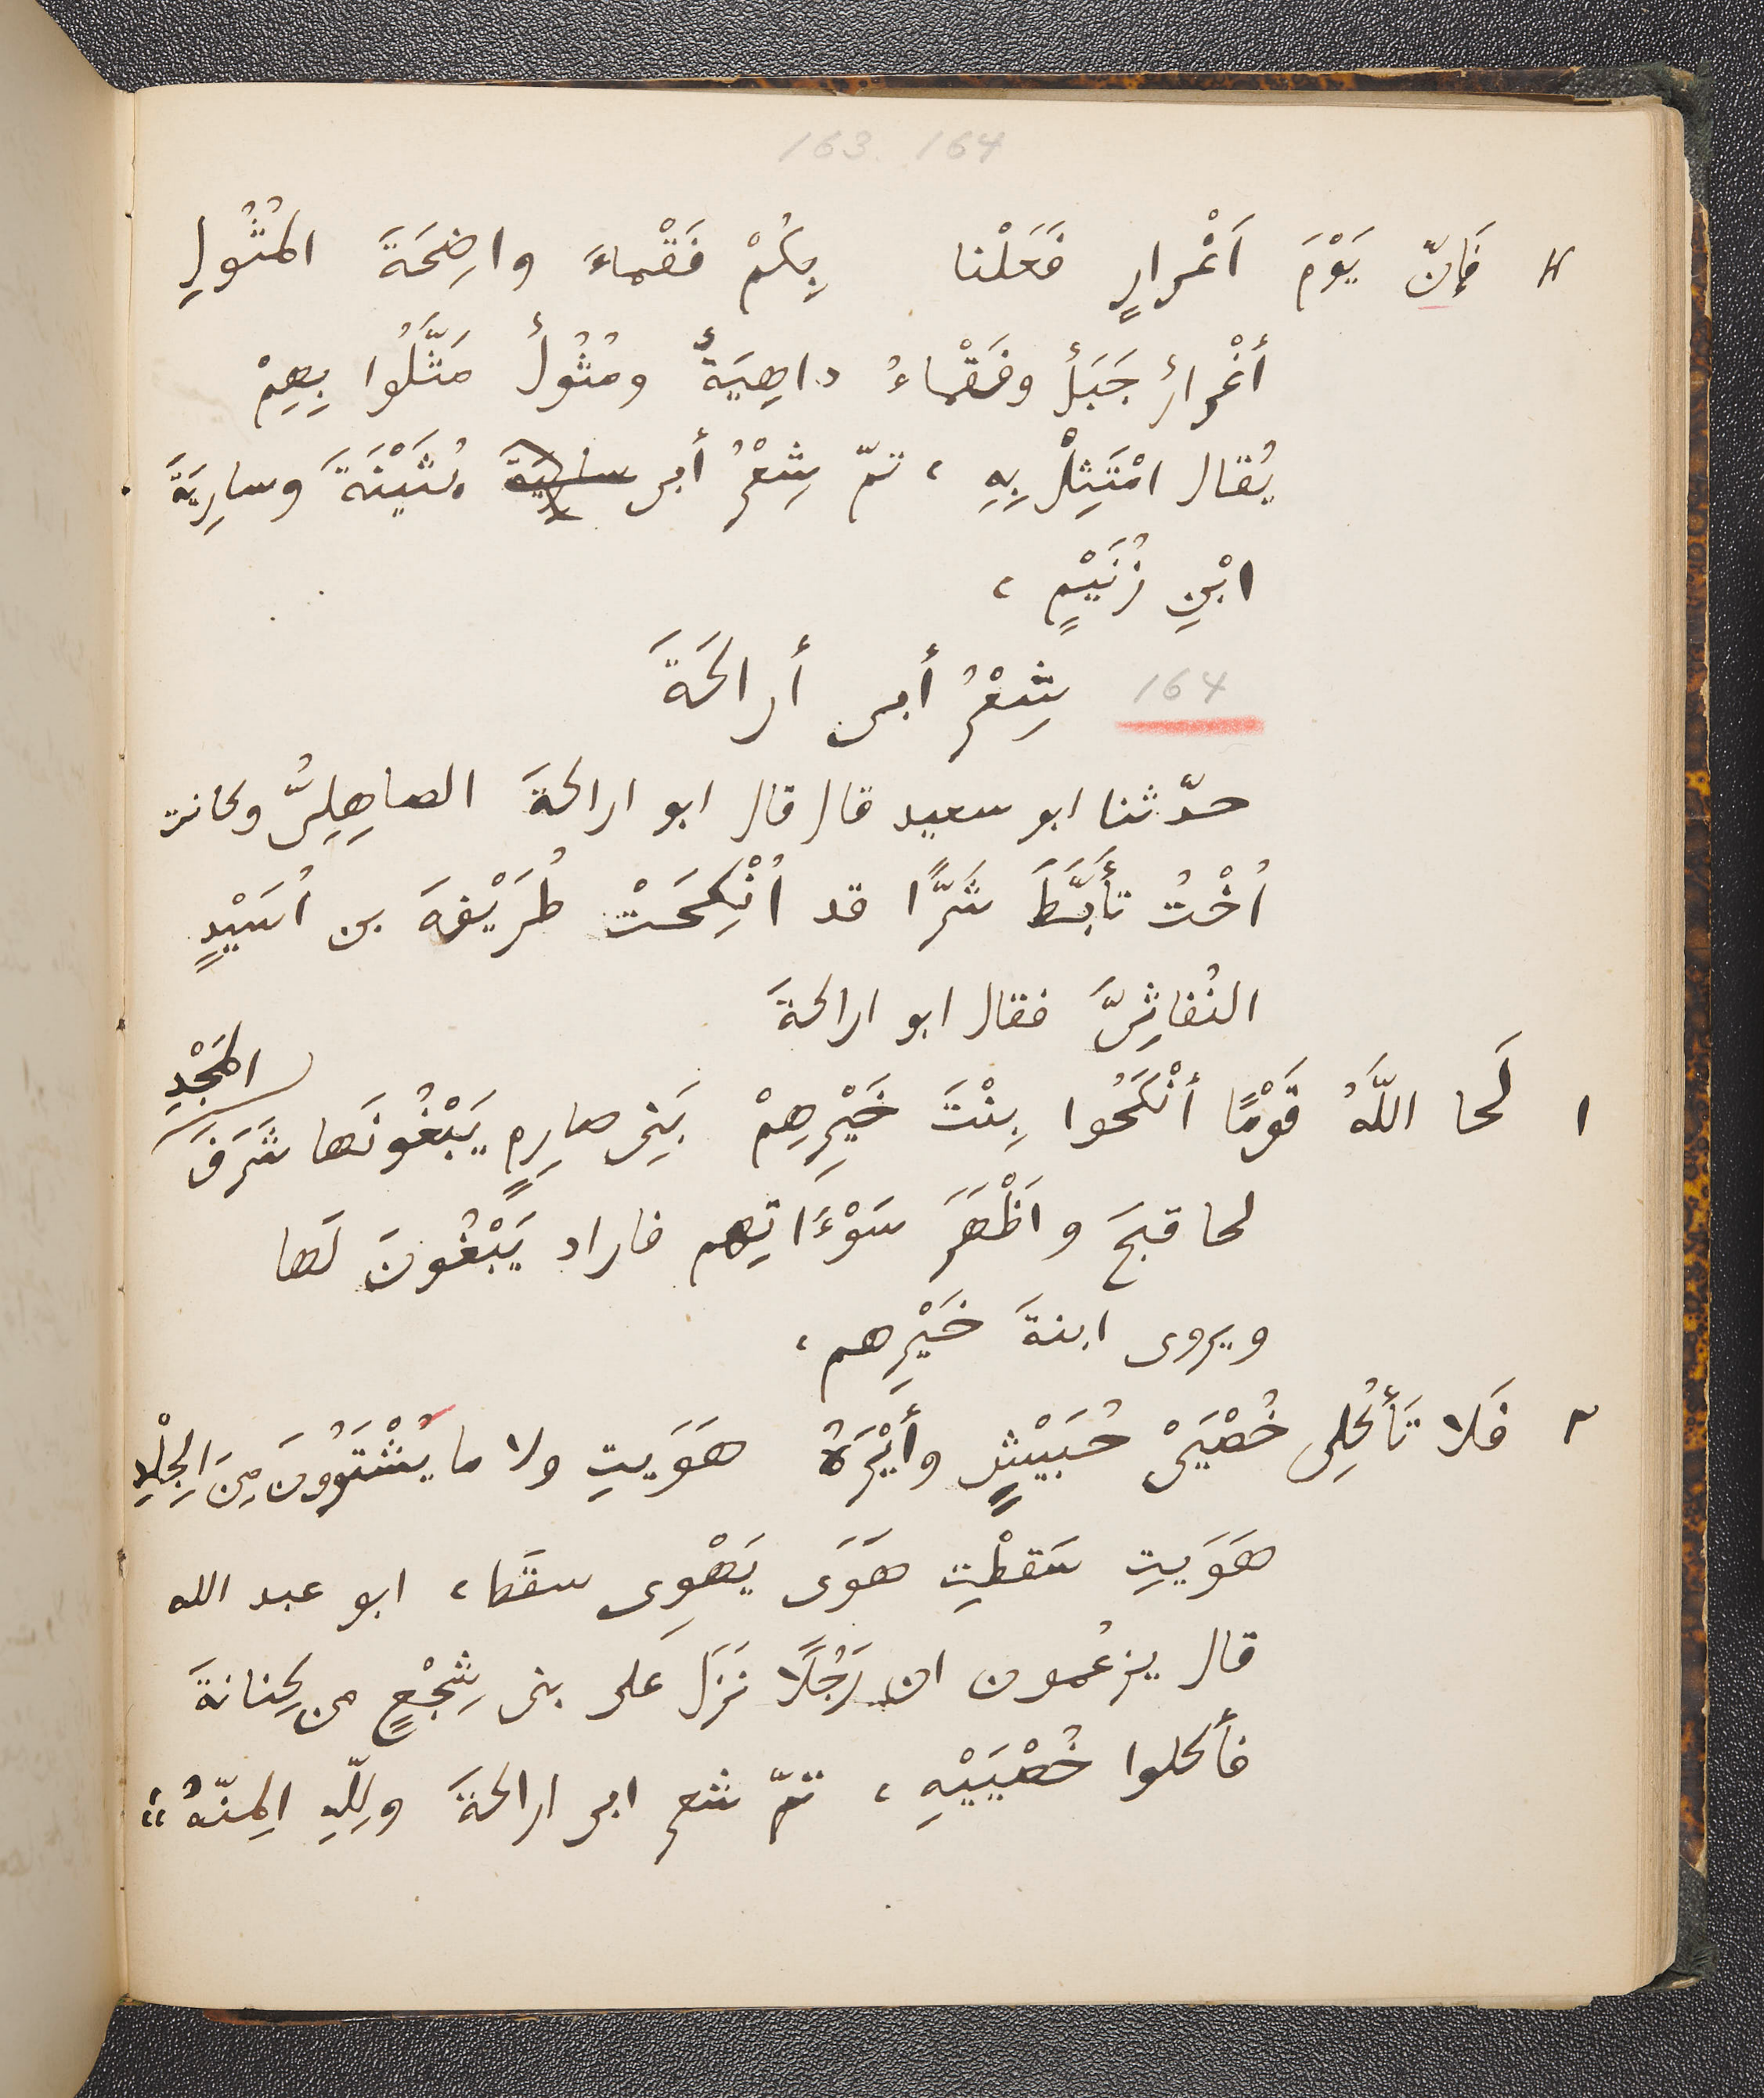 163. 164
١١ فَإنّ يَوْمَ اَغْرارٍ فَعَلْنا بِكُمْ فَقْماءَ واضِحَةَ المُثُولِ
أغْرارُ جَبَلُ وفَقْماءُ داهِيَةٌ ومُثُولُ مَثَّلُوا بِهِمْ
يُقال امْتَثِلْ بِهِ ، تمّ شِعْرُ أبى سارية بُثَيْنَةَ وسارِيَةَ
ابْنِ زُنَيْمٍ ،
164 شِعْرُ أبى أراكَةَ
حدّثنا ابو سعيد قال قال ابو اراكةَ الصاهِلِىُّ وكانت
اُخْتُ تأَبَّطَ شَرًّا قد اُنْكِحَتْ طُرَيْفةَ بن اُسَيْدٍ
النُفاثِىَّ فقال ابو اراكةَ
١ لَحا اللّهُ قَوْمًا أنْكَحُوا بِنْتَ خَيْرِهِمْ بَنِى صارِمٍ يَبْغُونَها شَرَفَ المَجْدِ
لحا قبحَ واَظْهَرَ سَوْءَاتِهم فاراد يَبْغُونَ لَها
ويروى ابنةَ خَيْرِهم ،
٢ فَلا تَأكُلِى خُصْيَىْ حُبَيْشٍ وأيْرَهُ هَوَيتِ ولا ما يُشْتَوُونَ مِنَ الجِلْدِ
هَوَيتِ سَقطْتِ هَوَى يَهْوِى سقَط ، ابو عبد الله
قال يزعُمون ان رَجُلًا نَزَلَ على بنى شِجْعٍ من كِنانةَ
فأكلوا خُصْيَيْهِ ، تمّ شعر ابى اراكةَ ولِلّهِ المِنّهُ ،،